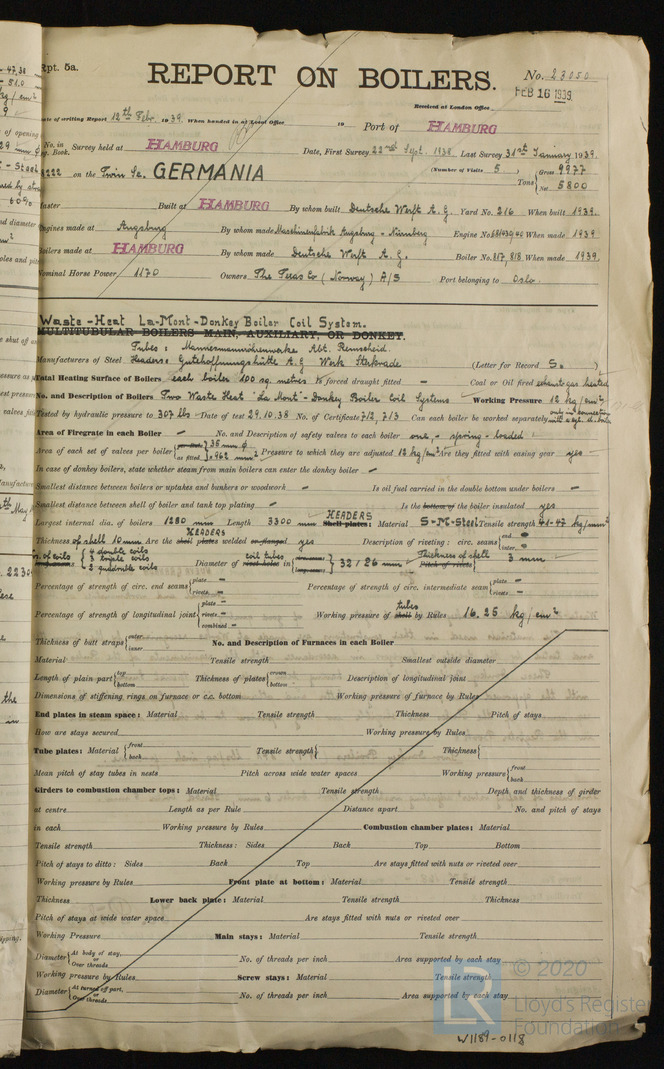 Rpt. 5a.
REPORT ON BOILERS.
No. 23050
FEB 16 1939
Received at London Office
Date of writing Report 12th Febr. 1939. When handed in at Local Office 19 Port of HAMBURG
No. in Reg. Book. Survey held at HAMBURG Date, First Survey 22nd Sept. 1938 Last Survey 31st January 1939.
on the Twin Sc. GERMANIA (Number of Visits 5) Tons { Gross 9977 Net 5800
Master Built at HAMBURG By whom built Deutsche Werft A.G. Yard No. 216 When built 1939.
Engines made at Augsburg By whom made Maschinenfabrik Augsburg - Nürnberg Engine No. When made 1939
Boilers made at HAMBURG By whom made Deutsche Werft A.G. Boiler No. 817, 818 When made 1939.
Nominal Horse Power 1170 Owners The Texas Co (Norway) A/S Port belonging to Oslo.
Waste-Heat La-Mont-Donkey Boiler Coil System.
MULTITUBULAR BOILERS MAIN, AUXILIARY, OR DONKEY.
Tubes: Mannesmannröhrenwerke Abt. Remscheid.
Manufacturers of Steel Headers: Gutehoffnungshütte A.G. Werk Sterkrade (Letter for Record S. )
Total Heating Surface of Boilers each boiler 100 sq. metres Is forced draught fitted - Coal or Oil fired exhaust gas heated
No. and Description of Boilers Two Waste Heat "La Mont"- Donkey Boiler Coil Systems Working Pressure 12 kg/cm²
Tested by hydraulic pressure to 307 lbs Date of test 29.10.38 No. of Certificate 712, 713 Can each boiler be worked separately only in connection
Area of Firegrate in each Boiler - No. and Description of safety valves to each boiler one, - spring - loaded
Area of each set of valves per boiler { 35 mm φ as fitted 962 mm² Pressure to which they are adjusted 12 kg/cm² Are they fitted with easing gear yes
In case of donkey boilers, state whether steam from main boilers can enter the donkey boiler -
Smallest distance between boilers or uptakes and bunkers or woodwork - Is oil fuel carried in the double bottom under boilers -
Smallest distance between shell of boiler and tank top plating - Is the bottom of the boiler insulated yes
HEADERS
Largest internal dia. of boilers 1280 mm Length 3300 mm Shell plates: Material S-M-Steel Tensile strength 41-47 kg/mm²
HEADERS
Thickness of shell 10 mm Are the shell plates welded or flanged yes Description of riveting: circ. seams { end - inter. -
No. of coils { 4 double coils 3 triple coils 2 quadruple coils Diameter of coil tubes rivet holes in { 32/26 mm Thickness of shell Pitch of rivets { 3 mm
Percentage of strength of circ. end seams { plate - rivets - Percentage of strength of circ. intermediate seam { plate - rivets -
Percentage of strength of longitudinal joint { plate - rivets - combined - Working pressure of tubes shell by Rules 16.25 kg/cm²
Thickness of butt straps { outer inner No. and Description of Furnaces in each Boiler
Material Tensile strength Smallest outside diameter
Length of plain part { top bottom Thickness of plates { crown bottom Description of longitudinal joint
Dimensions of stiffening rings on furnace or c.c. bottom Working pressure of furnace by Rules
End plates in steam space: Material Tensile strength Thickness Pitch of stays
How are stays secured Working pressure by Rules
Tube plates: Material { front back Tensile strength { Thickness {
Mean pitch of stay tubes in nests Pitch across wide water spaces Working pressure { front back
Girders to combustion chamber tops: Material Tensile strength Depth and thickness of girder
at centre Length as per Rule Distance apart No. and pitch of stays
in each Working pressure by Rules Combustion chamber plates: Material
Tensile strength Thickness: Sides Back Top Bottom
Pitch of stays to ditto: Sides Back Top Are stays fitted with nuts or riveted over
Working pressure by Rules Front plate at bottom: Material Tensile strength
Thickness Lower back plate: Material Tensile strength Thickness
Pitch of stays at wide water space Are stays fitted with nuts or riveted over
Working Pressure Main stays: Material Tensile strength
Diameter { At body of stay, or Over threads No. of threads per inch Area supported by each stay
Working pressure by Rules Screw stays: Material Tensile strength
Diameter { At turned off part, or Over threads No. of threads per inch Area supported by each stay
© 2020
Lloyd's Register
Foundation
LR
W1189-0118